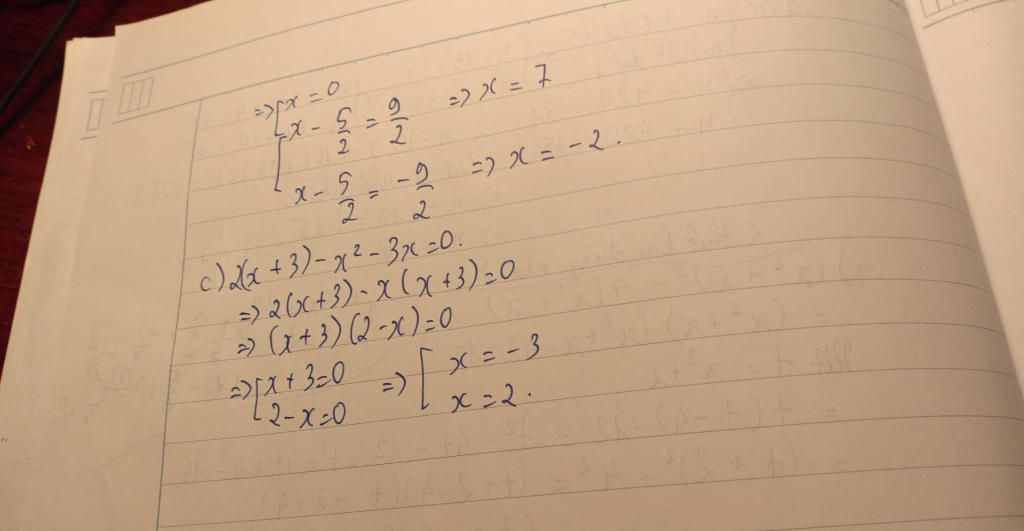 => [ x = 0
[ x - 5/2 = 9/2 => x = 7
x - 5/2 = -9/2 => x = -2.
c) 2(x + 3) - x² - 3x = 0.
=> 2(x + 3) - x(x + 3) = 0
=> (x + 3)(2 - x) = 0
=> [ x + 3 = 0 => [ x = -3
2 - x = 0 x = 2.